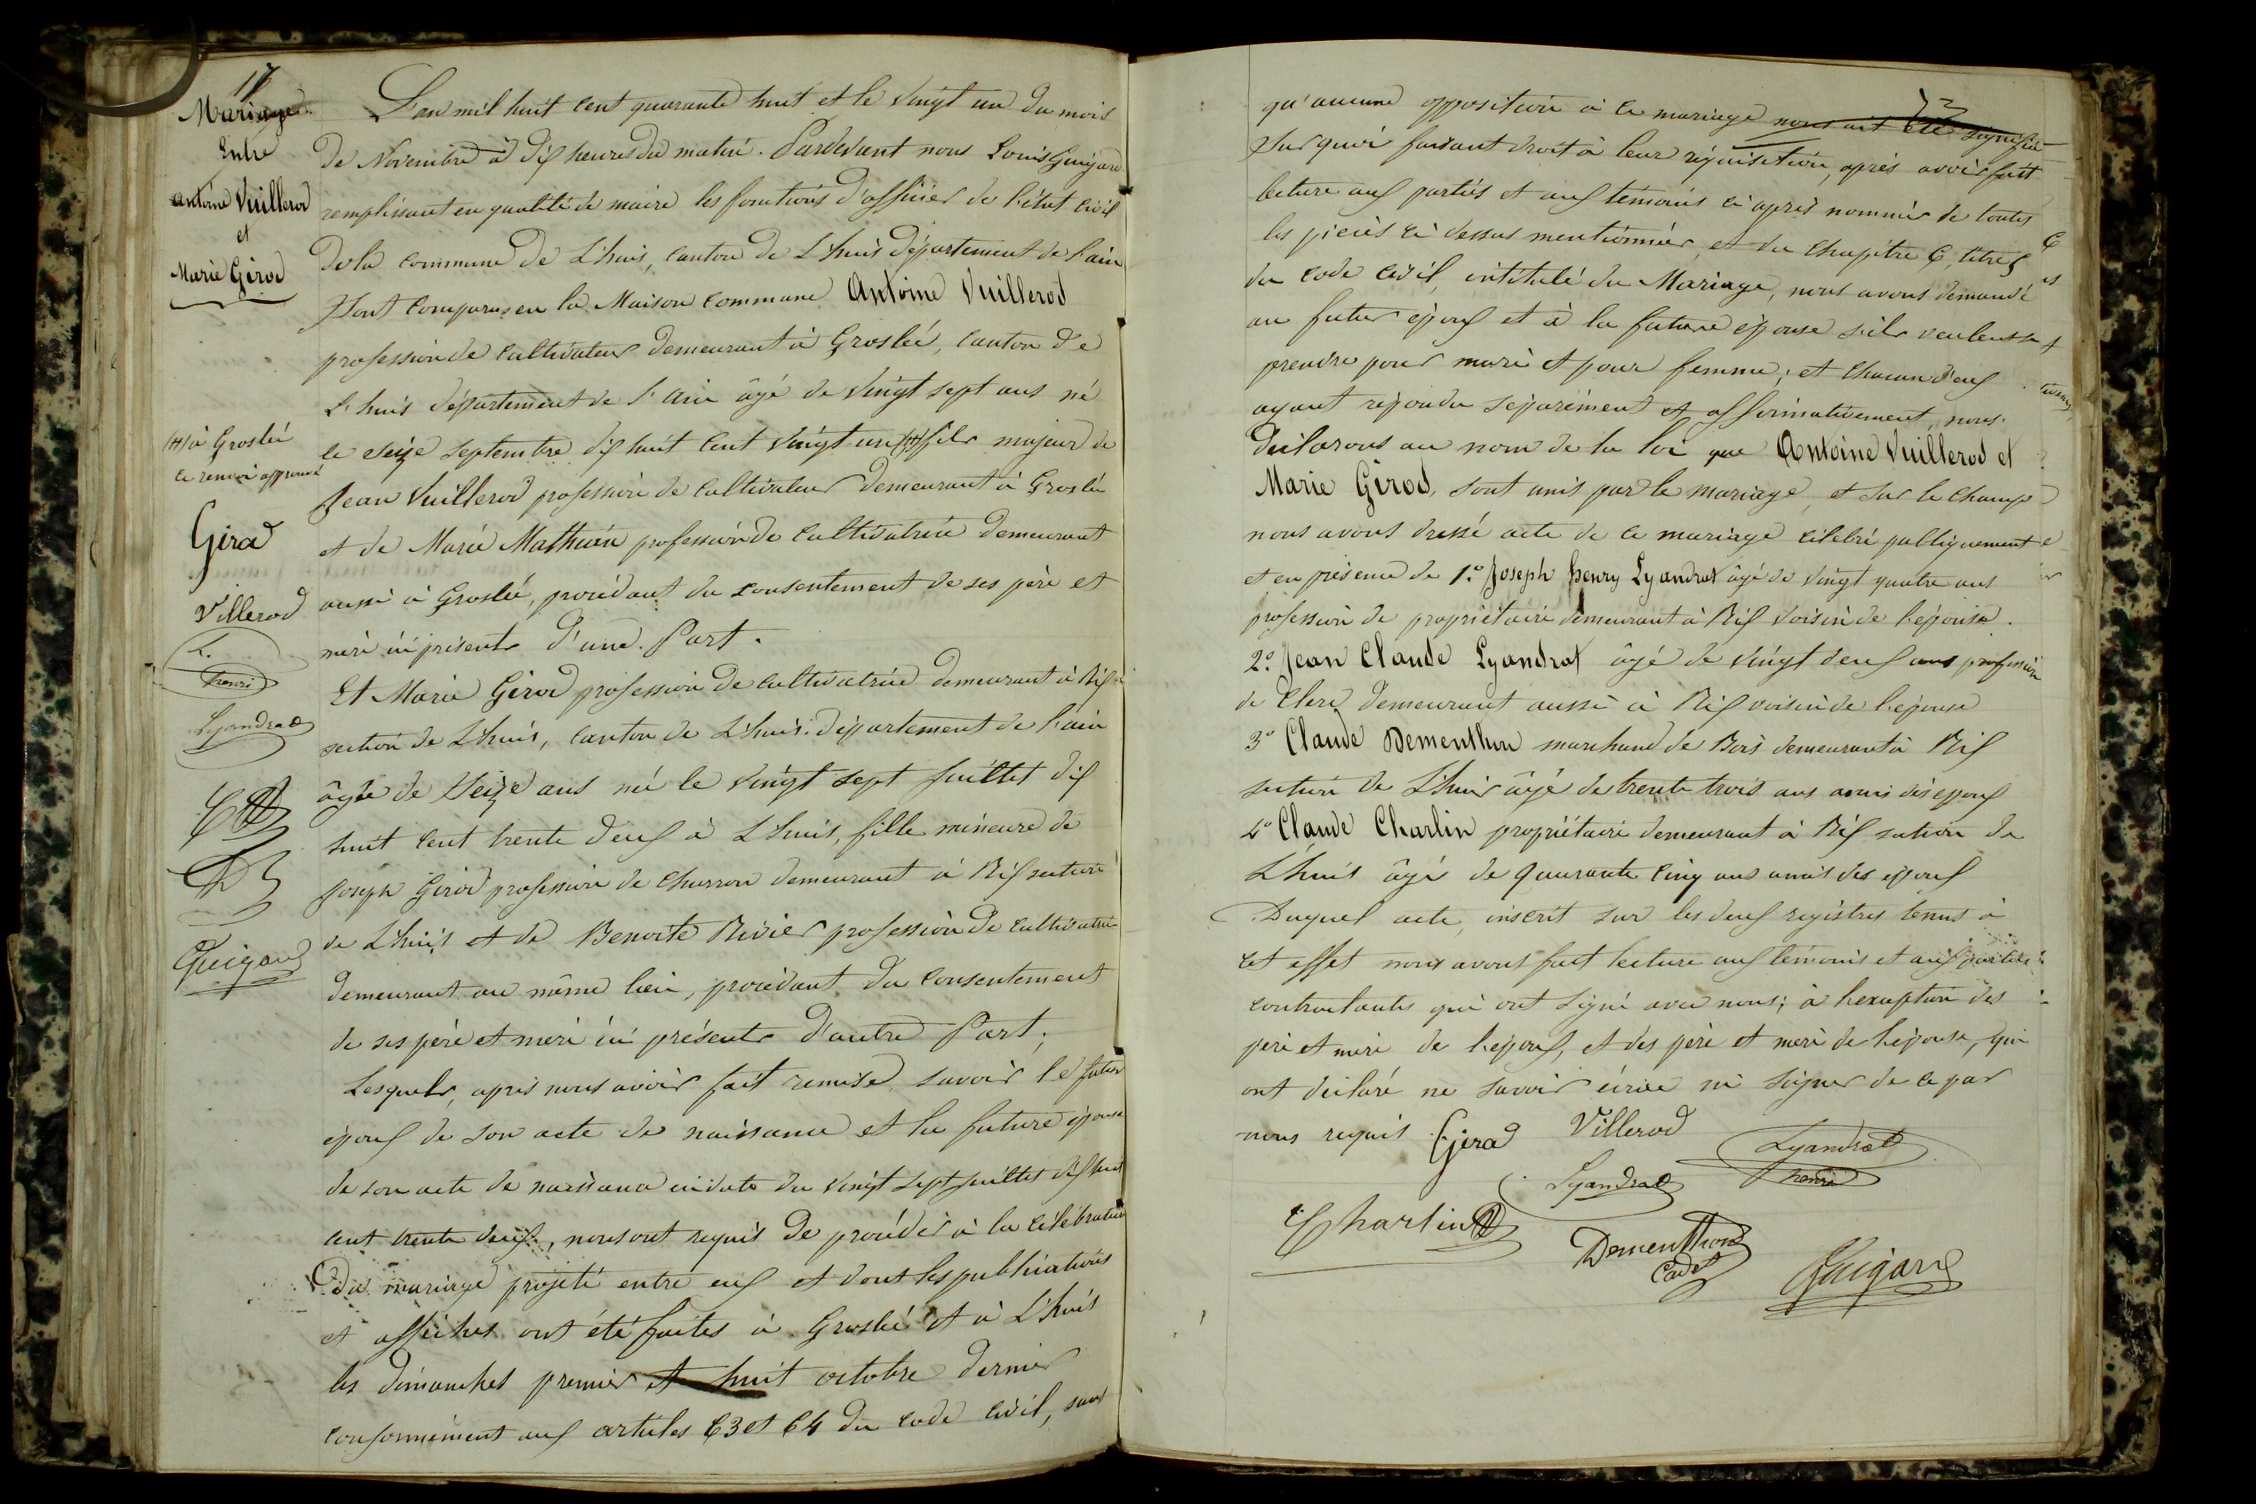 17
Mariage
Entre
Antoine Vuillerod
et
Marie Girod
(H) à Groslée
ce renvoi approuvé
Girod
Villerod
L.
henri
Lyandrat
Guigard
L'an mil huit cent quarante huit et le vingt un du mois
de Novembre à dix heures du matin. Pardevant nous Louis Guigard
remplissant en qualité de maire les fonctions d'officier de l'état civil
de la commune de L'huis, canton de L'huis département de l'ain
sont comparus en la Maison commune Antoine Vuillerod
profession de cultivateur demeurant à Groslée, canton de
L'huis département de l'ain âgé de vingt sept ans né
le seize septembre dix huit cent vingt un (H) fils majeur de
Jean Vuillerod profession de cultivateur demeurant à Groslée
et de Marie Mathieu profession de cultivatrice demeurant
aussi à Groslée, procédant du consentement de ses père et
mère ici présents d'une Part.
Et Marie Girod profession de cultivatrice demeurant à Rix
section de L'huis, canton de L'huis département de l'ain
âgée de Seize ans né le vingt sept juillet dix
huit cent trente deux à L'huis, fille mineure de
Joseph Girod profession de charron demeurant à Rix section
de L'huis et de Benoite Rivier profession de cultivatrice
demeurant au même lieu, procédant du consentement
de ses père et mère ici présents d'autre Part;
Lesquels, après nous avoir fait remise, savoir le futur
époux de son acte de naissance et la future épouse
de son acte de naissance en date du vingt sept juillet dix huit
cent trente deux, nous ont requis de procéder à la célébration
du mariage projeté entre eux et dont les publications
et affiches ont été faites à Groslée et à L'huis
les dimanches premier et huit octobre dernier
conformément aux articles 63 et 64 du code civil, sans
qu'aucune opposition à ce mariage nous ait été signifiée
Sur quoi faisant droit à leur réquisition, après avoir fait
lecture aux parties et aux témoins ci après nommés de toutes
les pièces ci dessus mentionnées, et du chapitre 6, titre 5
du code civil, intitulé du Mariage, nous avons demandé
au futur époux et à la future épouse s'ils veulent se
prendre pour mari et pour femme; et chacun d'eux
ayant répondu séparément et affirmativement, nous
déclarons au nom de la loi que Antoine Vuillerod et
Marie Girod, sont unis par le mariage, et sur le champ
nous avons dressé acte de ce mariage célébré publiquement
et en présence de 1.º Joseph henry Lyandrat âgé de vingt quatre ans
profession de propriétaire demeurant à Rix voisin de l'épouse.
2.º Jean Claude Lyandrat âgé de vingt deux ans profession
de Clerc demeurant aussi à Rix voisin de l'épouse
3º Claude Dementhon marchand de Bois demeurant à Rix
section de L'huis âgé de trente trois ans amis des époux
4º Claude Charlin propriétaire demeurant à Rix section de
L'huis âgé de quarante cinq ans amis des époux
Duquel acte, inscrit sur les deux registres tenus à
cet effet nous avons fait lecture aux témoins et aux parties
contractantes qui ont signé avec nous; à l'exception des
père et mère de l'époux, et des père et mère de l'épouse, qui
ont déclaré ne savoir écrire ni signer de ce par
nous requis. Girod Villerod Lyandrat
henri
Lyandrat
Charlin
Dementhon
Cadet
Guigard